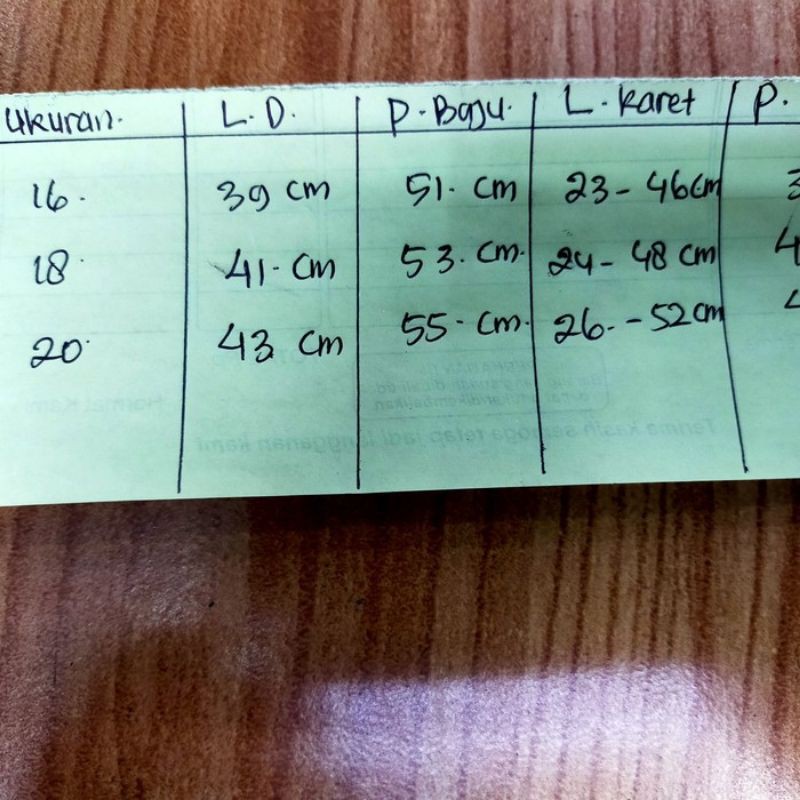 Ukuran. L.D. P.Baju. L. Karet P.
16. 39 cm 51. cm 23 - 46cm 3
18 41. cm 53. cm. 24 - 48 cm 4
20 43 cm 55. cm. 26. - 52cm 4
Terima kasih semoga tetap jadi langganan kami
Hormat Kami